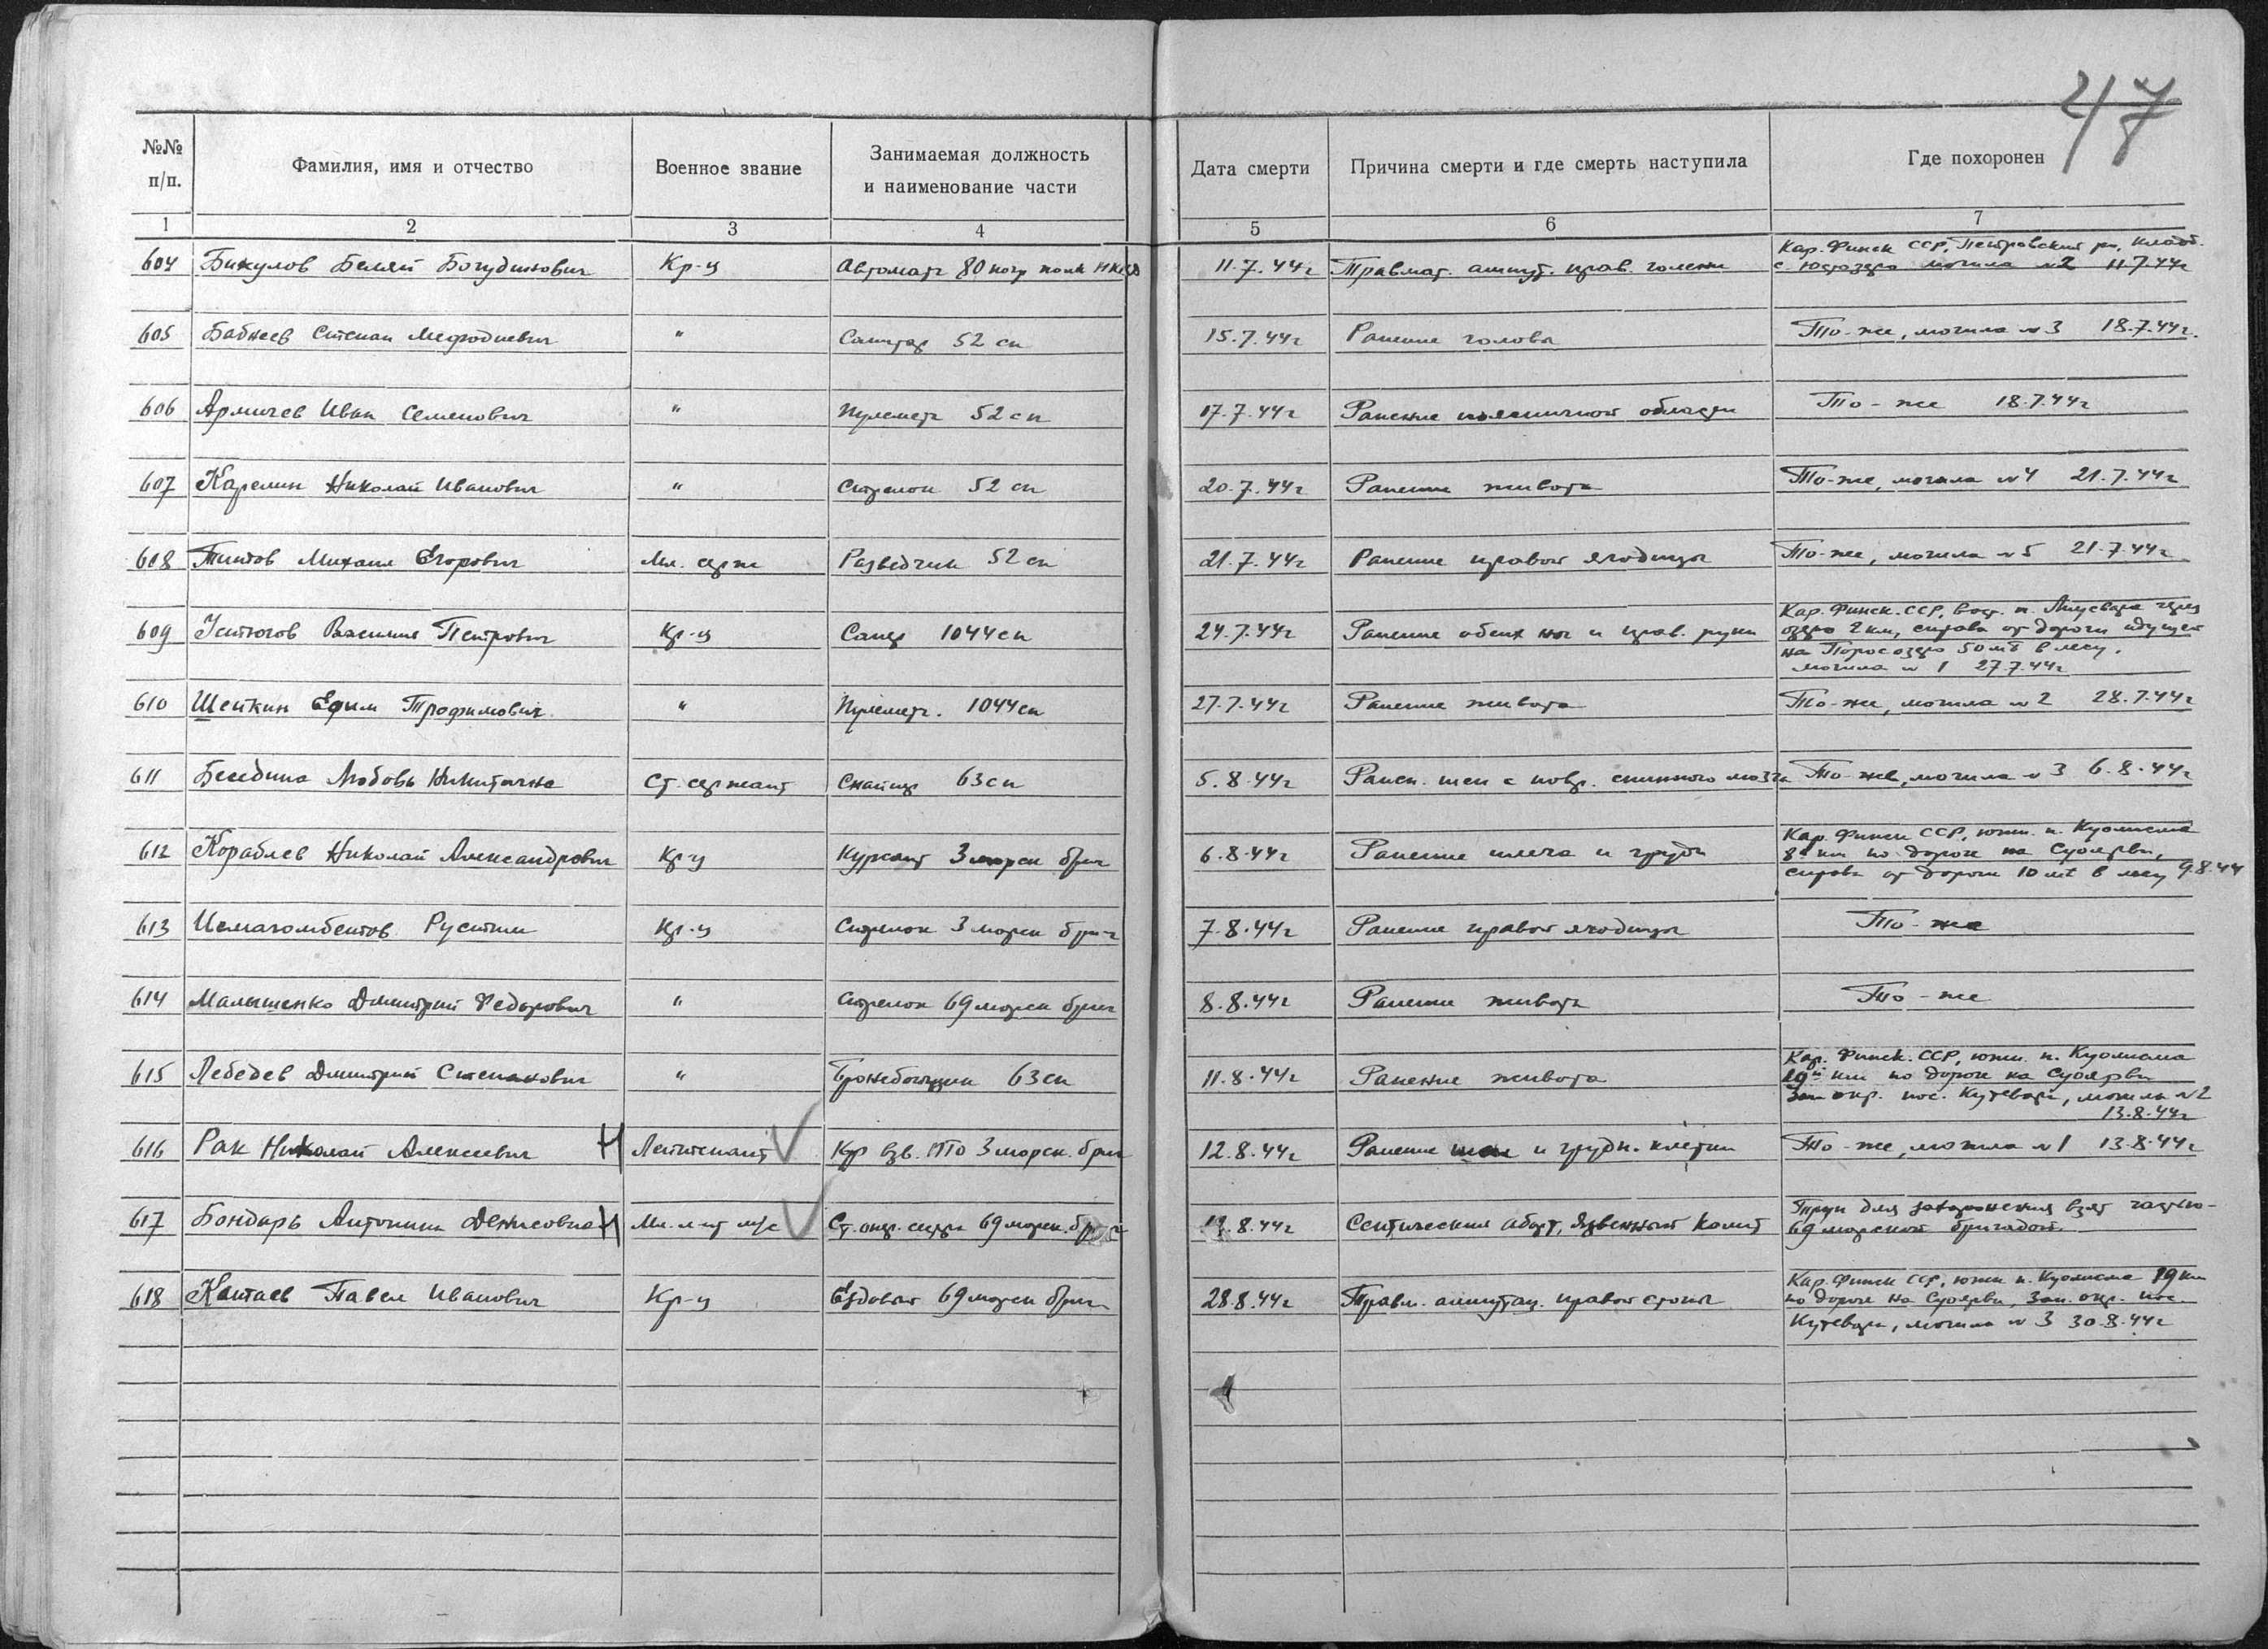 47
№№ п/п. Фамилия, имя и отчество Военное звание Занимаемая должность и наименование части Дата смерти Причина смерти и где смерть наступила Где похоронен
1 2 3 4 5 6 7
604 Бикулов Белян Богудинович Кр-ц Автомат 80 погр полк НКВД 11.7.44г Травмат. ампут. прав. голени Кар. Финск ССР, Петровский рн, кладб.
с. Юстозеро могила №2 11.7.44г
605 Бабнеев Степан Мефодиевич " Санитар 52 сп 15.7.44г Ранение головы То-же, могила №3 18.7.44г.
606 Армичев Иван Семенович " Пулеметч 52 сп 17.7.44г Ранение поясничной области То-же 18.7.44г
607 Карелин Николай Иванович " Стрелок 52 сп 20.7.44г Ранение живота То-же, могила №4 21.7.44г
608 Тинтов Михаил Егорович Мл. серж Разведчик 52 сп 21.7.44г Ранение правой ягодицы То-же, могила №5 21.7.44г
609 Устюгов Василий Петрович Кр-ц Сапер 1044 сп 24.7.44г Ранение обеих ног и прав. руки Кар. Финск. ССР, вост. п. через
озеро 2 км, справа от дороги идущей
на Поросозеро 50 мт в лесу.
могила № 1 27.7.44г
610 Шейкин Ефим Трофимович " Пулеметч. 1044 сп 27.7.44г Ранение живота То-же, могила №2 28.7.44г
611 Беседина Любовь Никитична Ст. сержант Снайпер 63 сп 5.8.44г Ранен. шеи с повр. спинного мозга То-же, могила №3 6.8.44г
612 Кораблев Николай Александрович Кр-ц Курсант 3 морск бриг 6.8.44г Ранение плеча и груди Кар. Финск ССР, южн. п. Куолисма
8й км по дороге на Суоярви,
справа от дороги 10 мт в лесу 9.8.44
613 Исмагомбетов Рустим Кр-ц Стрелок 3 морск бриг 7.8.44г Ранение правой ягодицы То-же
614 Малышенко Дмитрий Федорович " Стрелок 69 морск бриг 8.8.44г Ранение живота То-же
615 Лебедев Дмитрий Степанович " Бронебойщик 63 сп 11.8.44г Ранение живота Кар. Финск. ССР, южн. п. Куолисма
19й км по дороге на Суоярви
Зап окр. пос. Кутевари, могила №2
13.8.44г
616 Рак Николай Алексеевич Ч Лейтенант Кдр взв. ПТО 3 морск. бриг 12.8.44г Ранение шеи и грудн. клетки То-же, могила №1 13.8.44г
617 Бондарь Антонина Денисовна Ч Мл. л-нт м/с Ст. опер. сестра 69 морск. бриг 8.44г Септический аборт, язвенный колит Труп для захоронения взят частью-
69 морской бригадой
618 Каптаев Павел Иванович Кр-ц Ездовой 69 морск бриг 28.8.44г Травм. ампутац. правой стопы Кар. Финск ССР, южн п. Куолисма 19 км
по дороге на Суоярви, зап. окр. пос.
Кутевари, могила №3 30.8.44г